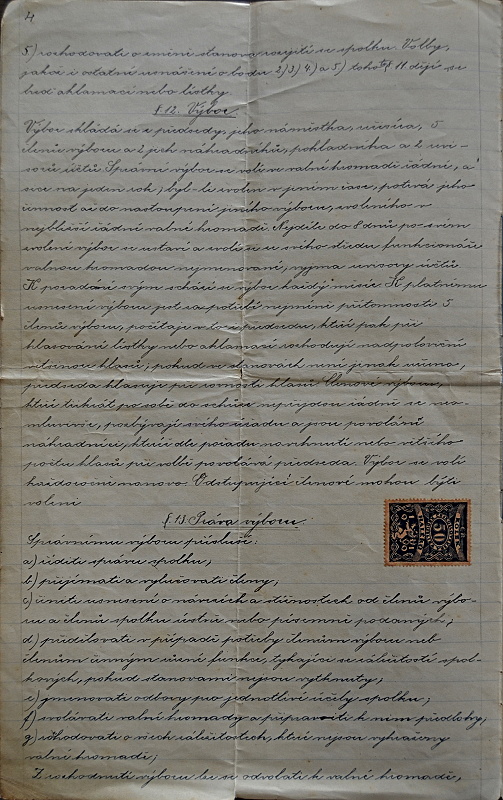 4
5) rozhodovati o změně stanov a rozejití se spolku. Volby,
jakož i ostatní usnášení o bodu 2) 3) 4) a 5) tohoto § 11 dějí se
buď aklamací nebo lístky.
§ 12. Výbor
Výbor skládá se z předsedy, jeho náměstka, 5
členů výboru a 2 jich náhradníků, pokladníka a 2 revi-
sorů účtů. Správní výbor se volí ve valné hromadě řádné, a
sice na jeden rok; byl-li zvolen v jiném čase, potrvá jeho
činnost až do nastoupení jiného výboru, zvoleného v
nejbližší řádné valné hromadě. Nejdéle do 8 dnů po svém
zvolení výbor se ustaví a zvolí si ze svého středu funkcionáře
valnou hromadou nejmenované, vyjma revisory účtů.
K poradám svým schází se výbor každý měsíc. K platnému
usnesení výboru jest zapotřebí nejméně přítomnosti 5
členů výboru, počítaje v to předsedu, kteří pak při
hlasování lístky nebo aklamací rozhodují nadpoloviční
většinou hlasů; pokud ve stanovách není jinak určeno,
předseda hlasuje při rovnosti hlasů. Členové výboru,
kteří třikrát po sobě do schůze nepřijdou řádně se neo-
mluvivše, pozbývají svého úřadu a jsou povoláni
náhradníci, kteří dle pořadu navrhnutí nebo většího
počtu hlasů při volbě povolává předseda. Výbor se volí
každoročně nanovo. Odstupující členové mohou býti
voleni
§ 13. Práva výboru.
Správnímu výboru přísluší:
a) říditi správu spolku;
b) přijímati a vylučovati členy;
c) činiti usnesení o návrzích a stížnostech od členů výbo-
ru a členů spolku ústně nebo písemně podaných;
d) přidělovati v případě potřeby členům výboru neb
členům činným různé funkce, týkající se záležitostí spol-
kových, pokud stanovami nejsou vytknuty;
e) jmenovati odbory pro jednotlivé účely spolku;
f) svolávati valné hromady a připravovati k nim předlohy;
g) rozhodovati o všech záležitostech, které nejsou vyhraženy
valné hromadě;
Z rozhodnutí výboru lze se odvolati k valné hromadě,
50